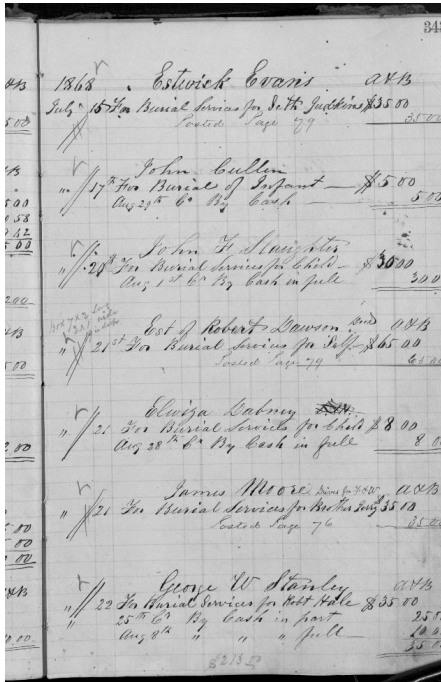 343
1868 Estwick Evans A&B
July 15 For Burial Services for Seth Judkins $35 00
Posted Page 79 35 00
John Cullin
" 17th For Burial of Infant — $5 00
Aug 29th Cr By Cash — 5 00
John F Slaughter
" 20th For Burial Services for Child — $30 00
Aug 1st Cr By Cash in full 30 0
Est of Robert Dawson A&B
" 21st For Burial Services for Self — $65 00
Posted Page 79 65 00
Elwiza Dabney
" 21 For Burial Services for Child $8 00
Aug 28th Cr By Cash in full 8 00
James Moore Drives for A&B
" 21 For Burial Services for Brother $35 00
Posted Page 76 35 00
George W Stanley A&B
" 22 For Burial Services for Robt Hale $35 00
" 25th Cr By Cash in part 25 0
Aug 8th " " " full — 10 0
35 0
$213